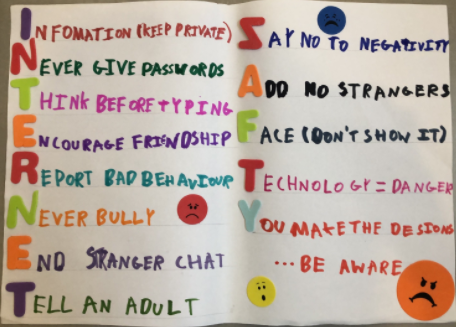 INFOMATION (KEEP PRIVATE)
NEVER GIVE PASSWORDS
THINK BEFORE TYPING
ENCOURAGE FRIENDSHIP
REPORT BAD BEHAVIOUR
NEVER BULLY
END STRANGER CHAT
TELL AN ADULT
SAY NO TO NEGATIVITY
ADD NO STRANGERS
FACE (DON'T SHOW IT)
TECHNOLOGY = DANGER
YOU MAKE THE DESIONS
...BE AWARE